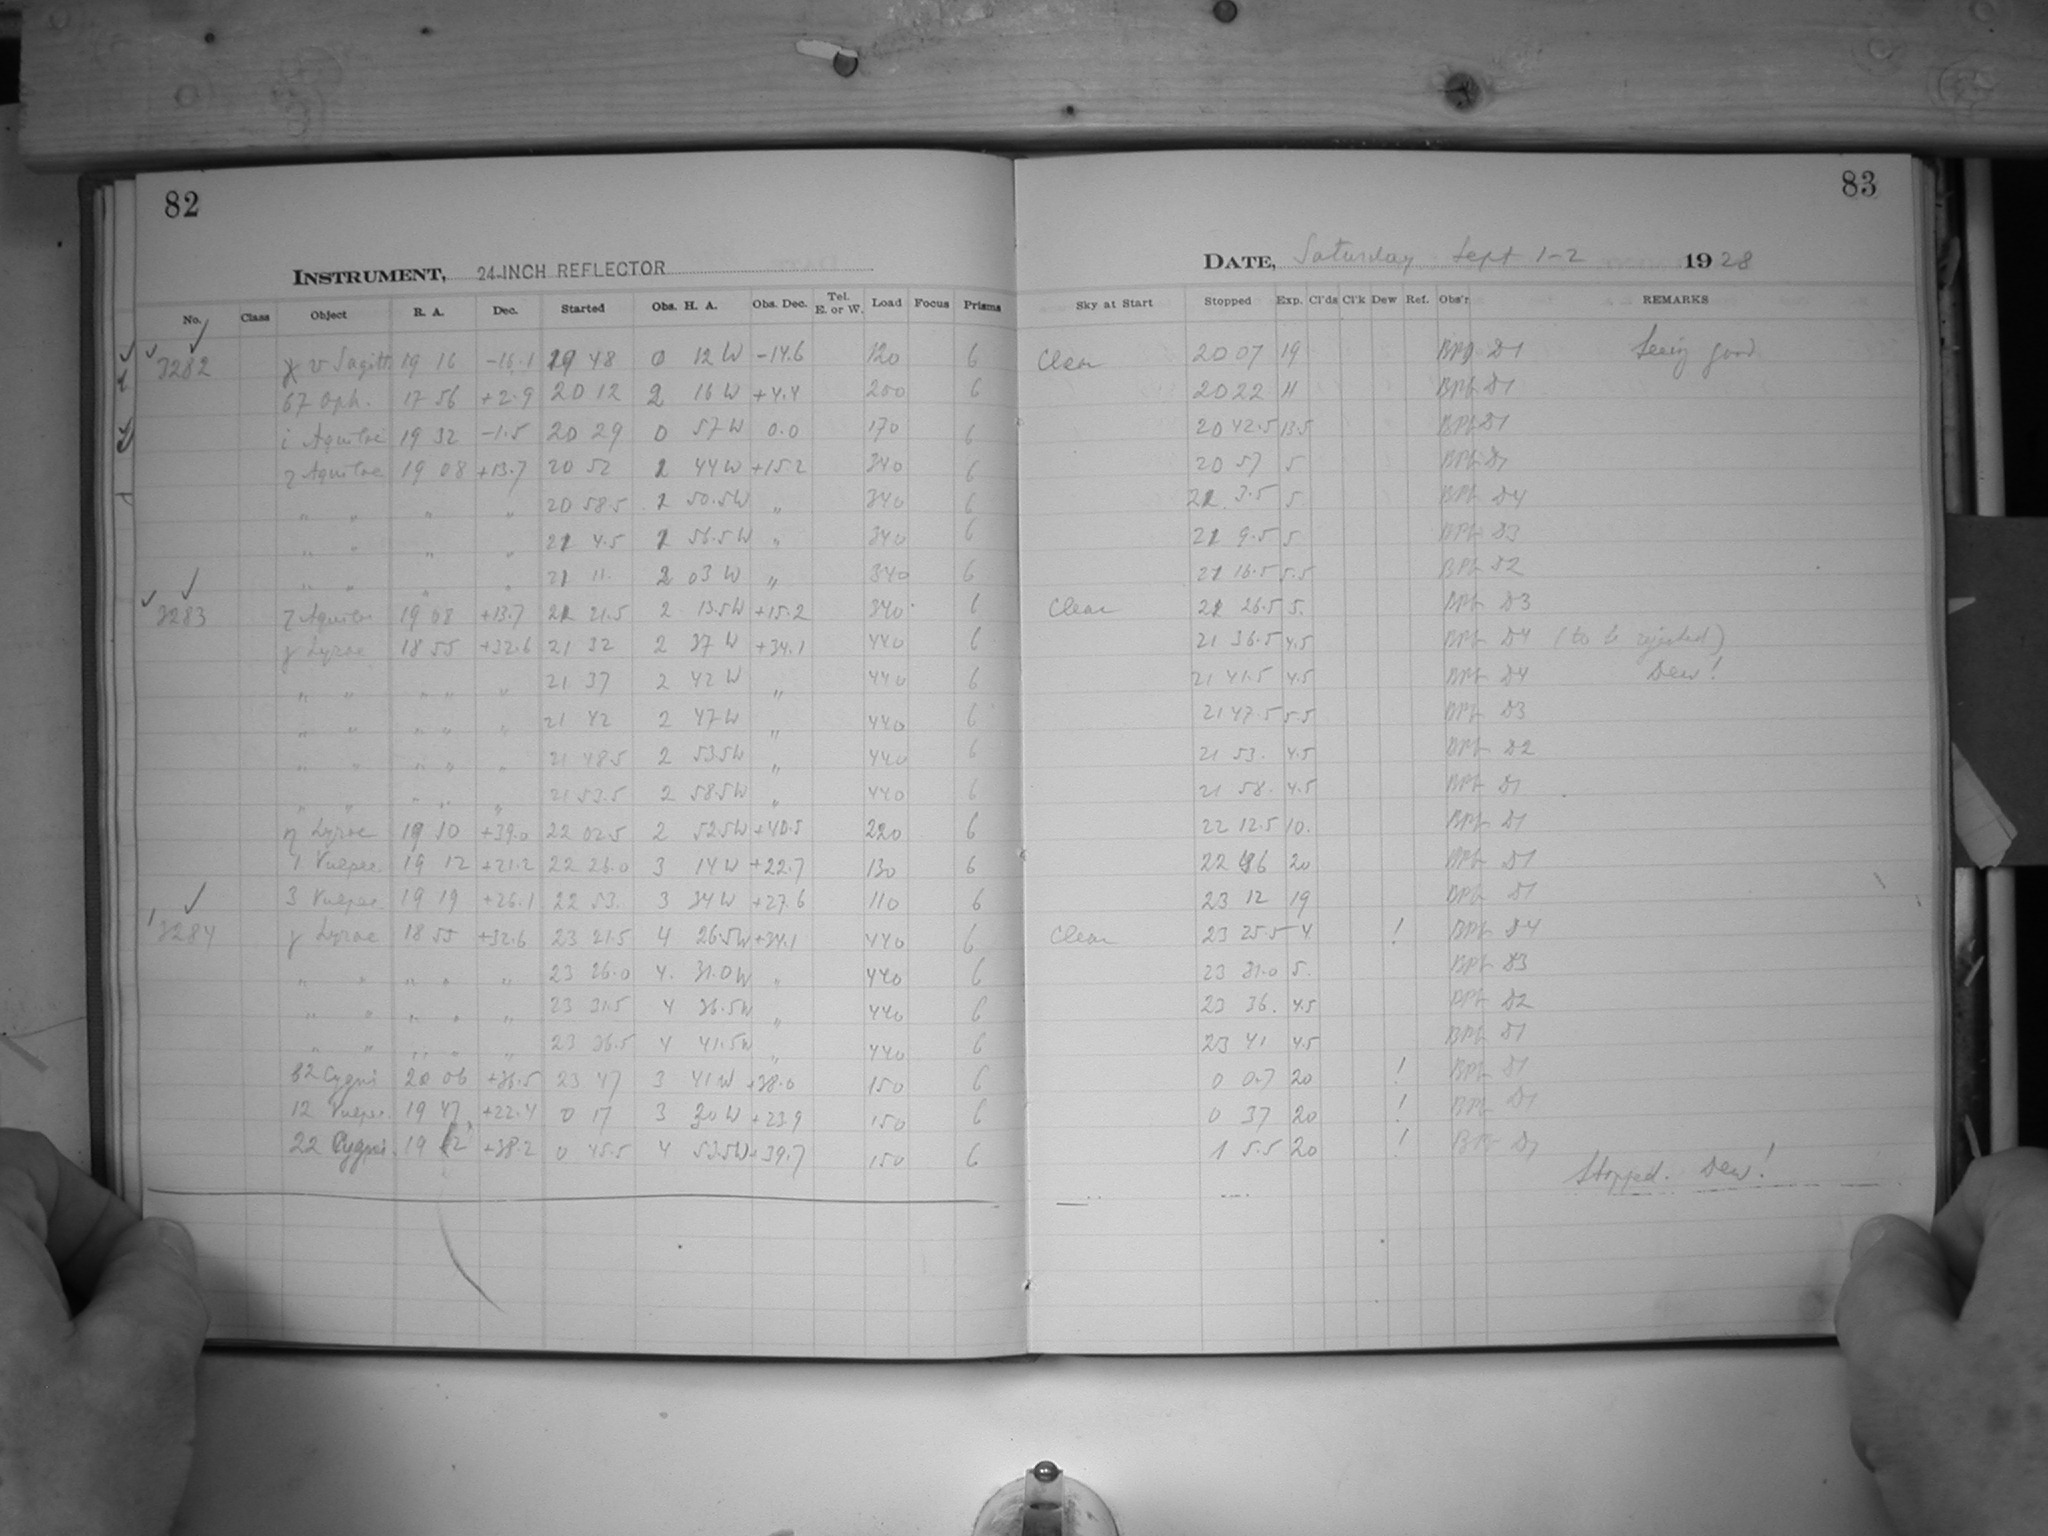 82
83
INSTRUMENT, 24-INCH REFLECTOR
DATE, Saturday Sept 1-2 1928
No. Class Object R. A. Dec. Started Obs. H. A. Obs. Dec. Tel. E. or W. Load Focus Prisms Sky at Start Stopped Exp. Cl'ds Cl'k Dew Ref. Obs'r REMARKS
3282 υ Sagitt 19 16 -16.1 19 48 0 12 W -14.6 120 6 Clear 20 07 19 D1 Seeing good
67 Oph. 17 56 +2.9 20 12 2 16 W +4.4 200 6 20 22 11 D1
i Aquilae 19 32 -1.5 20 29 0 57 W 0.0 170 6 20 42.5 13.5 D1
ζ Aquilae 19 08 +13.7 20 52 1 44 W +15.2 340 6 20 57 5 D1
" " " " 20 58.5 1 50.5 W " 340 6 21 3.5 5 D4
" " " " 21 4.5 1 56.5 W " 340 6 21 9.5 5 D3
" " " " 21 11. 2 03 W " 340 6 21 16.5 5.5 D2
3283 ζ Aquilae 19 08 +13.7 21 21.5 2 13.5 W +15.2 340 6 Clear 21 26.5 5. D3
γ Lyrae 18 55 +32.6 21 32 2 37 W +34.1 440 6 21 36.5 4.5 D4 (to be rejected)
" " " " " 21 37 2 42 W " 440 6 21 41.5 4.5 D4 Dew!
" " " " " 21 42 2 47 W " 440 6 21 47.5 5.5 D3
" " " " " 21 48.5 2 53.5 W " 440 6 21 53. 4.5 D2
" " " " " 21 53.5 2 58.5 W " 440 6 21 58. 4.5 D1
η Lyrae 19 10 +39.0 22 02.5 2 52.5 W +40.5 220 6 22 12.5 10. D1
1 Vulpec. 19 12 +21.2 22 26.0 3 14 W +22.7 130 6 22 46 20 D1
3 Vulpec 19 19 +26.1 22 53. 3 34 W +27.6 110 6 23 12 19 D1
3284 γ Lyrae 18 55 +32.6 23 21.5 4 26.5 W +34.1 440 6 Clear 23 25.5 4. ! D4
" " " " " 23 26.0 4. 31.0 W " 440 6 23 31.0 5. D3
" " " " " 23 31.5 4 36.5 W " 440 6 23 36. 4.5 D2
" " " " " 23 36.5 4 41.5 W " 440 6 23 41 4.5 D1
Cygni 20 06 +36.5 23 47 3 41 W +38.0 150 6 0 0.7 20 ! D1
12 Vulpec. 19 47 +22.4 0 17 3 30 W +23.9 150 6 0 37 20 ! D1
22 Cygni. 19 +38.2 0 45.5 4 53.5 W +39.7 150 6 1 5.5 20 ! D1
Stopped. Dew!